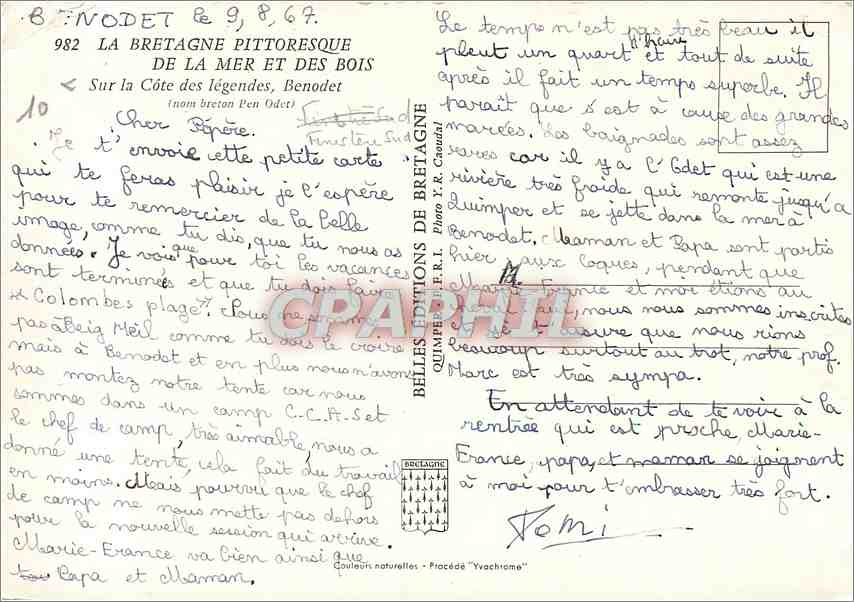 BÉNODET le 9, 8, 67.
982 LA BRETAGNE PITTORESQUE
DE LA MER ET DES BOIS
Sur la Côte des légendes, Benodet
(nom breton Pen Odet)
10
Finistère Sud
Cher Pépère.
Je t'envoie cette petite carte
qui te feras plaisir je l'espère
pour te remercier de la belle
image, comme tu dis, que tu nous as
données. Je vois que pour toi les vacances
sont terminées et que tu dois faire
"Colombes plage". Nous ne sommes
pas à Beig Meil comme tu dois le croire
mais à Benodet et en plus nous n'avons
pas montez notre tente car nous
sommes dans un camp C.C.A.S et
le chef de camp, très aimable, nous a
donné une tente, cela fait du travail
en moins. Mais pourvu que le chef
de camp ne nous mette pas dehors
pour la nouvelle session qui arrive.
Marie-France va bien ainsi que
Papa et Maman.
BELLES ÉDITIONS DE BRETAGNE
QUIMPER F.R.I. Photo Y. R. Caoudal
Le temps n'est pas très beau il
pleut un quart d'heure et tout de suite
après il fait un temps superbe. Il
paraît que s'est à cause des grandes
marées. Les baignades sont assez
rares car il y a l'Odet qui est une
rivière très froide qui remonte jusqu'a
Quimper et se jette dans la mer à
Benodet. Maman et Papa sont partis
hier aux coques, pendant que
Marie-France et moi étions au
nous nous sommes inscrites
et assure que nous rions
beaucoup surtout au trot, notre prof.
Marc est très sympa.
En attendant de te voir à la
rentrée qui est proche, Marie-
France, papa, et maman se joignent
à moi pour t'embrasser très fort.
Domi
BRETAGNE
Couleurs naturelles - Procédé "Yvachrome"
CPAPHIL